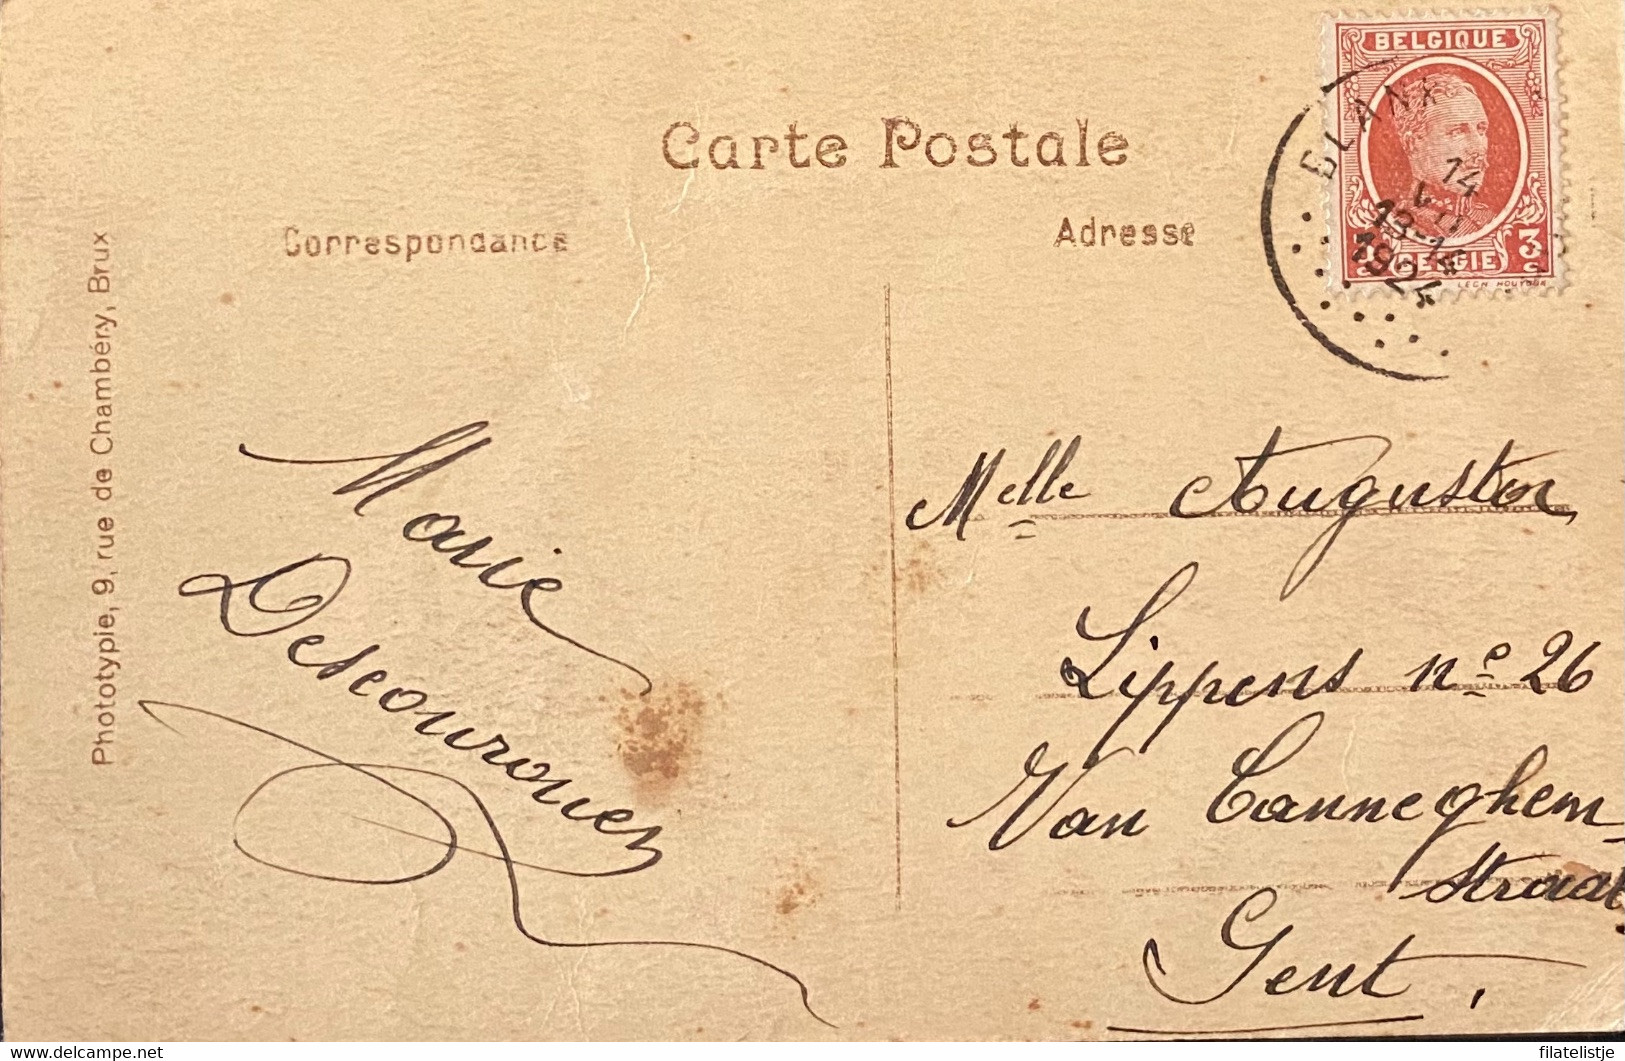 BELGIQUE
Carte Postale
BLANK
14
VII
13-14
1924
3 BELGIE 3
LECH HOUYOUX
Correspondance
Adresse
Phototypie, 9, rue de Chambéry, Brux
Marie
Descouronnez
Melle Augusta
Lippens no 26
Van Canneghem
straat
Gent.
filatelistje
delcampe.net